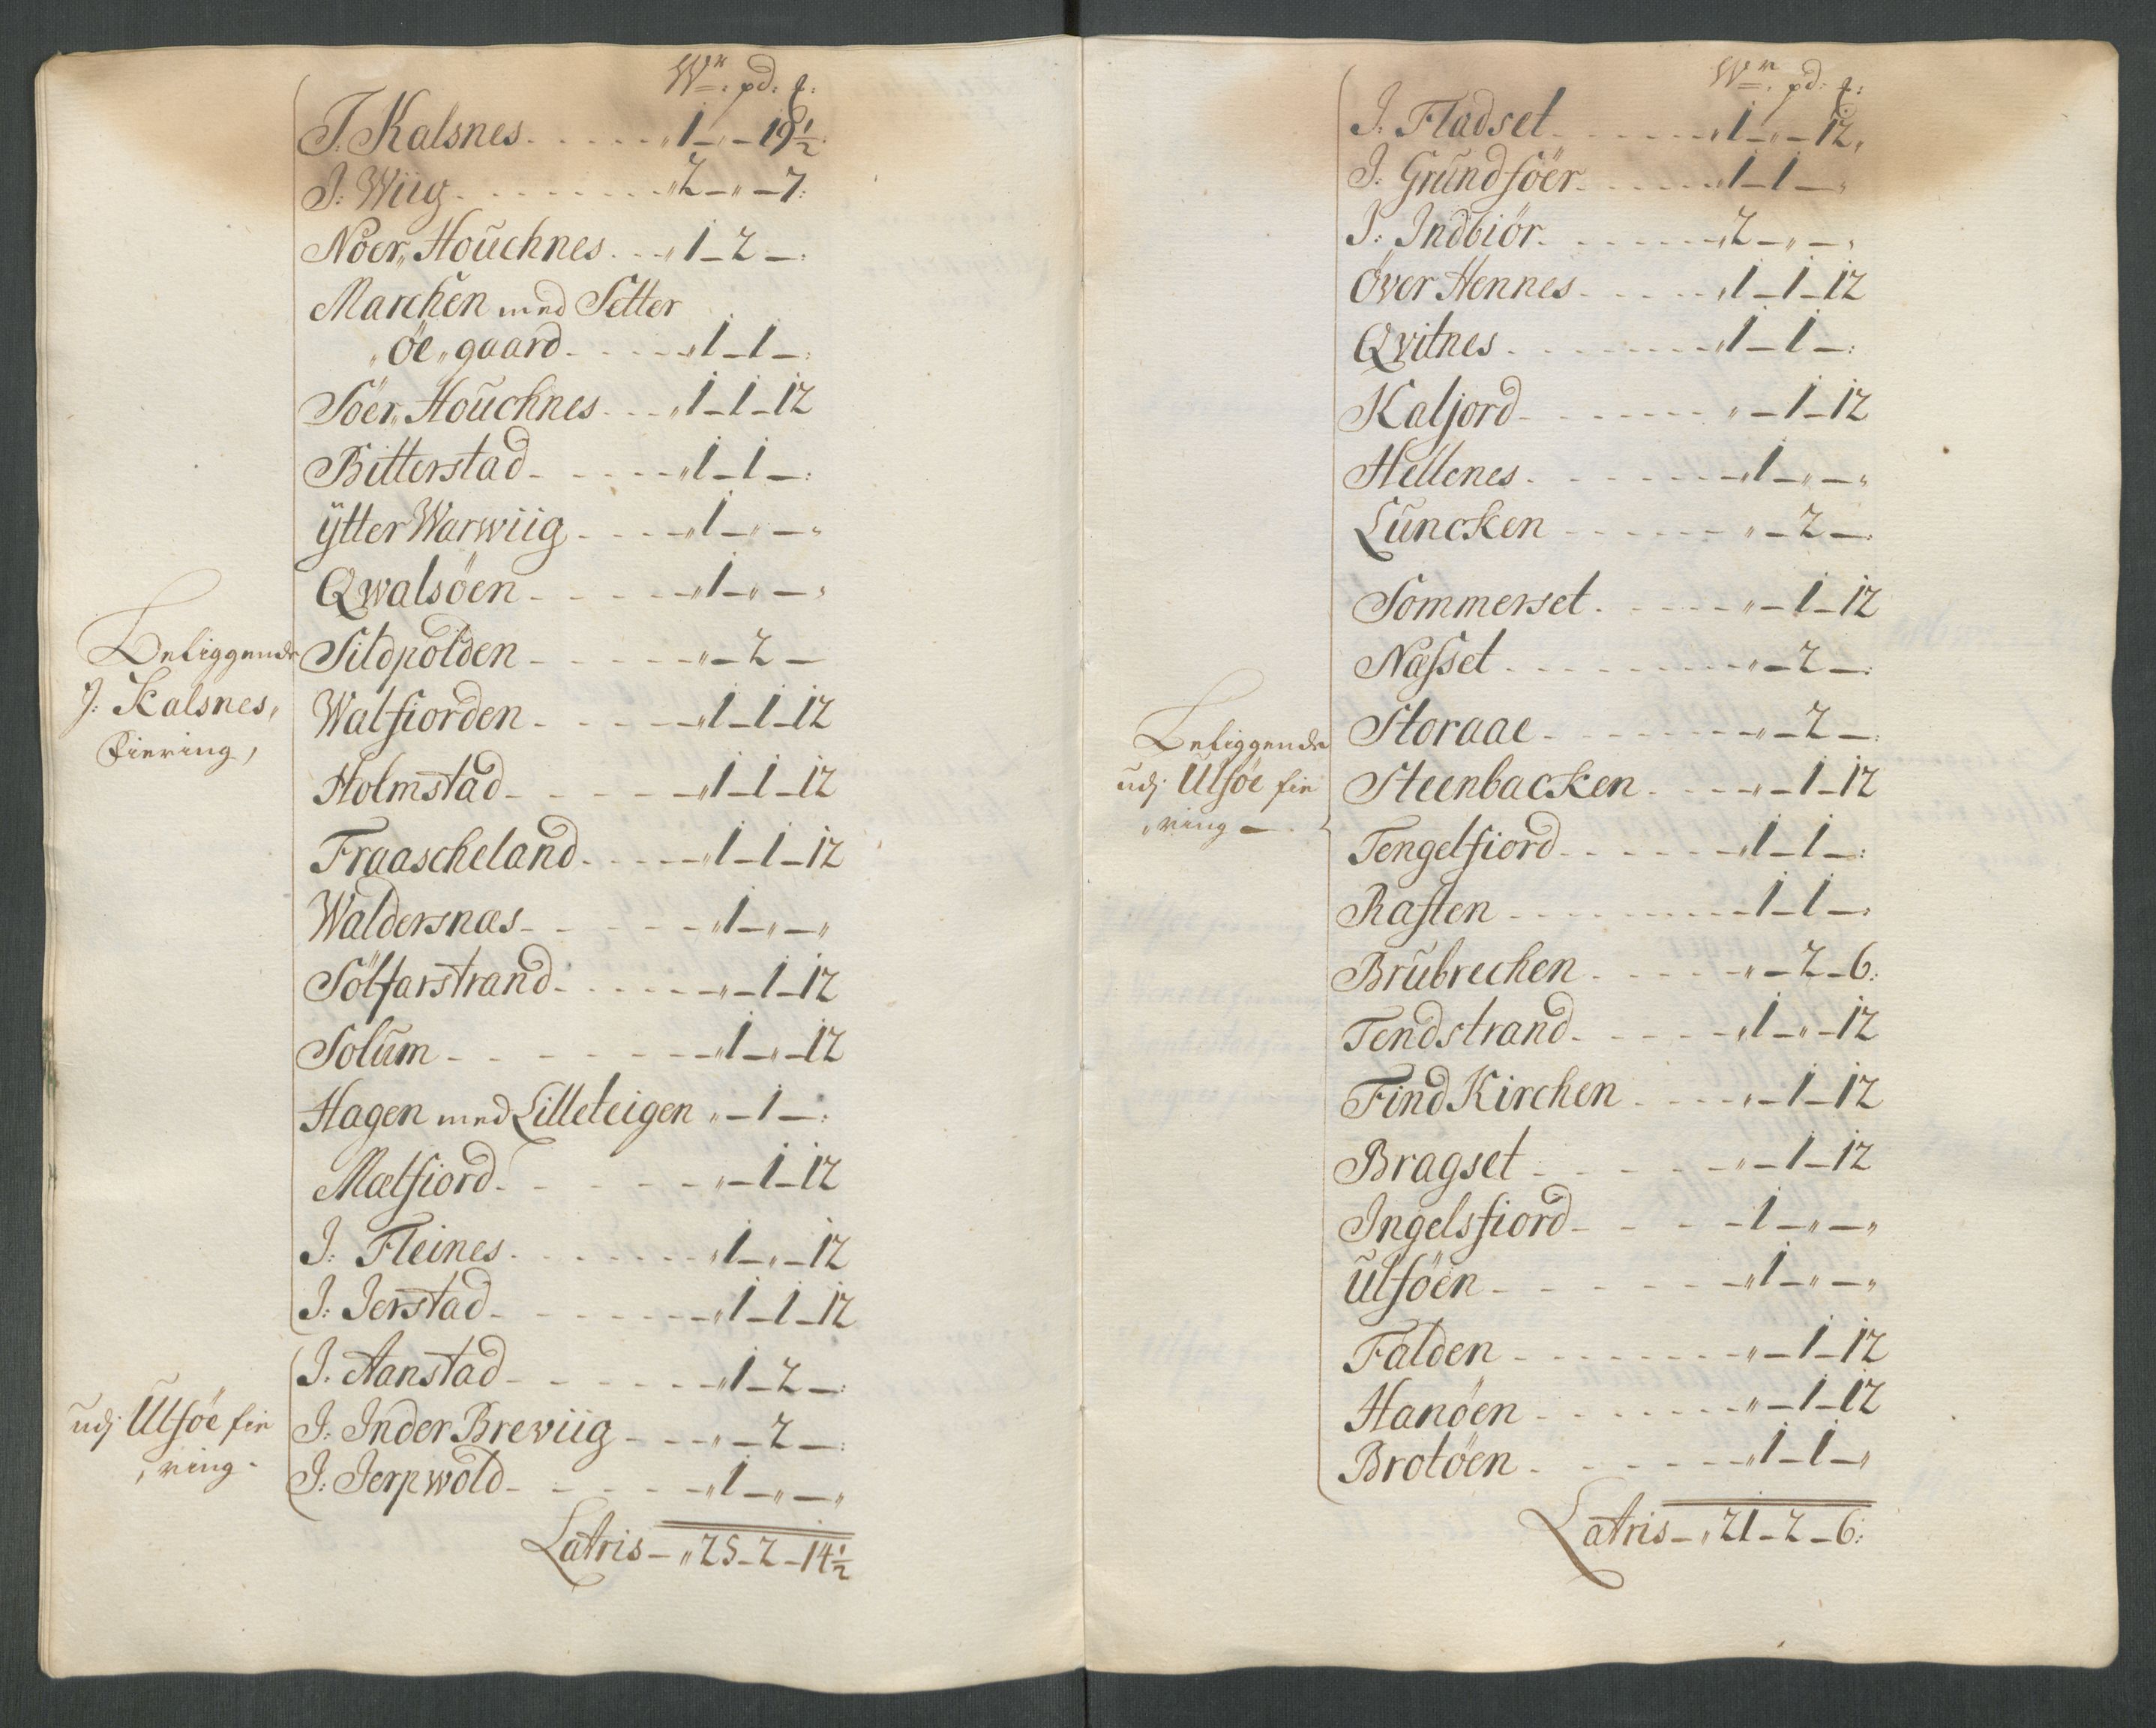 Wn: pd: ℔:
J. Kalsnes. - - - - - „1 - „ - 19½:
J: Wiig. - - - - - - - „2 - „ - 7:
Nöer„ Houchnes. - - „1 - 2 - :
Marchen med Setter
„öe„gaard - - - - - „1 - 1 - :
Söer„ Houchnes - - - „1 - 1 - 12
Bitterstad - - - - - „1 - 1 - :
ÿtter Warwiig - - - - „1 - „ - „
Qwalsöen - - - - - „1 - „ - „
Beliggende
J: Kalsnes„
fiering,
Sildpolden - - - - - „ - 2 -
Walfiorden - - - - - „1 - 1 - 12
Holmstad - - - - - „1 - 1 - 12
Fraascheland - - - - „1 - 1 - 12
Waldersnæs - - - - - „1 - „ - „
Sölfarstrand - - - - - „ - 1 - 12
Solum - - - - - - - „1 - „ - 12
Hagen med Lilleteigen „ - 1 - :
Mælfiord - - - - - - „ - 1 - 12
J: Fleines - - - - - - „1 - „ - 12
J: Jerstad - - - - - - „1 - 1 - 12
J. Aanstad - - - - - - „1 - 2 - :
udj Ulföe fie
„ring -
J: Inder Breviig - - - „ - 2 - :
J: Jerpwold - - - - - „1 - „ - „
Latris - „25 - 2 - 14½
Wn: pd: ℔:
J. Fladset - - - - - - „1 - „ - 12„
J. Grundföer - - - - - „1 - 1 - „
J: Indbiör - - - - - - „2 - „ - „
Över Hennes - - - - - „1 - 1 - 12
Qvitnes - - - - - - - „1 - 1 - :
Kaljord - - - - - - - „ - 1 - 12
Hellenes - - - - - - - „1 - „ - „
Luncken - - - - - - „ - 2 - :
Sommerset - - - - - „ - 1 - 12
Næsset - - - - - - - „ - 2 - :
Beliggende
udj Ulföe fie
„ring -
Storaae - - - - - - - „ - 2 - :
Steenbacken - - - - „ - 1 - 12
Tengelfiord - - - - - „1 - 1 - :
Raften - - - - - - - - 1 - 1 - :
Brubrechen - - - - - „ - 2 - 6:
Tendstrand - - - - - „1 - „ - 12
Find Kirchen - - - - „ - 1 - 12
Bragset - - - - - - „ - 1 - 12
Ingelsfiord - - - - - 1 - „ - „
Ulföen - - - - - - - „1 - „ - „
Falden - - - - - - - „ - 1 - 12
Hanöen - - - - - - - „ - 1 - 12
Brotöen - - - - - - - „1 - 1 - „
Latris - „21 - 2 - 6: